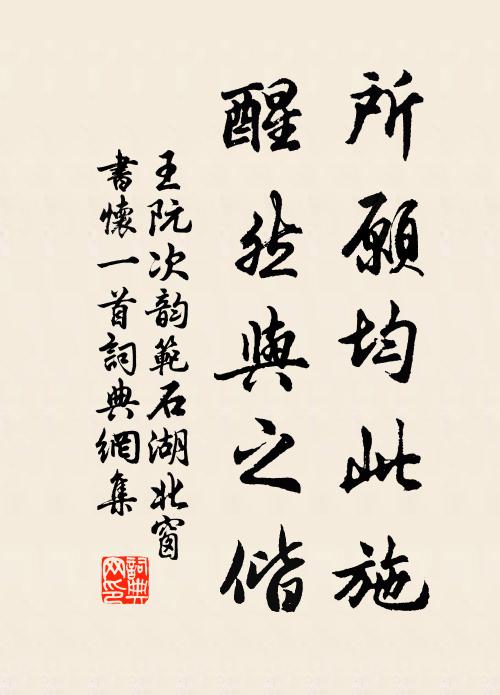 所願均此施
醒然與之偕
王阮次韵範石湖北窗
書懷一首詞典網集
詞典
网印